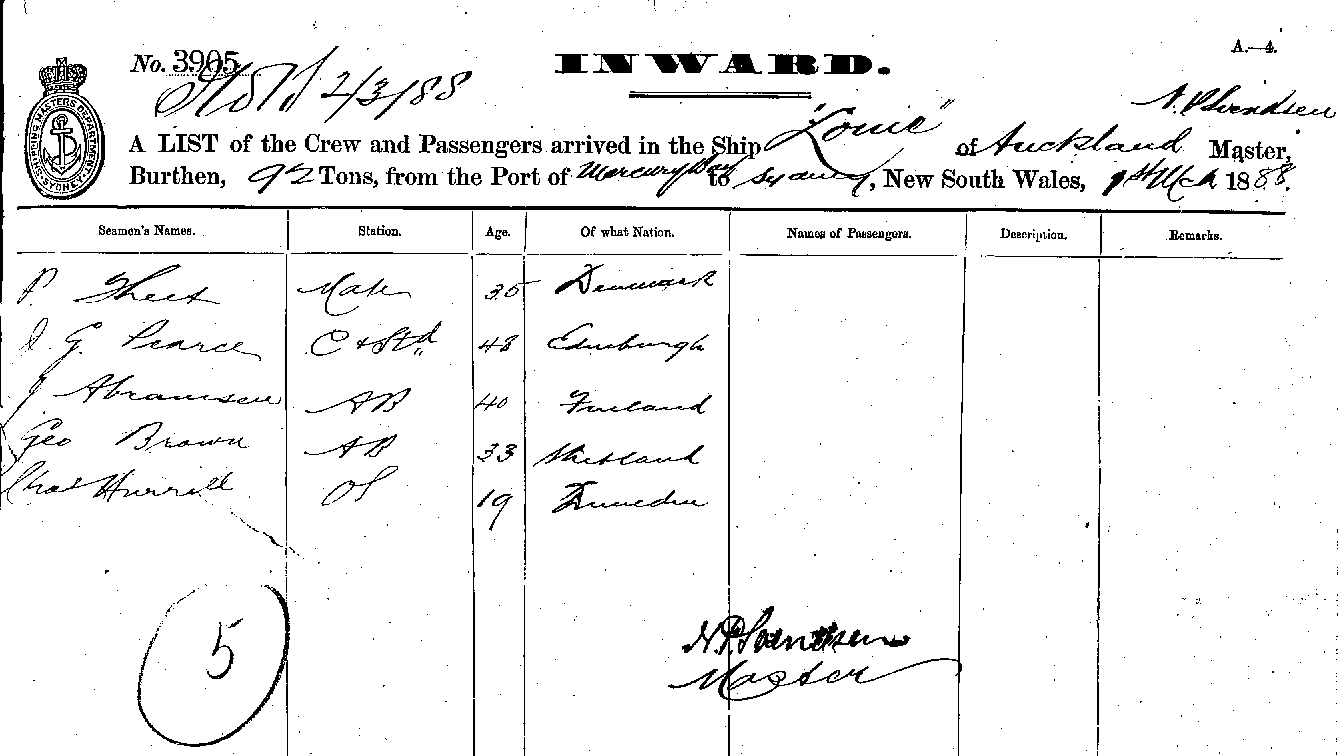 A.—4.
No. 3905
INWARD.
2/3/88
N. P. Svendsen
A LIST of the Crew and Passengers arrived in the Ship "Louie" of Auckland Master,
Burthen, 92 Tons, from the Port of Mercury Bay to Sydney, New South Wales, 1st Mch 1888.
SHIPPING MASTERS DEPARTMENT SYDNEY
Seamen's Names. Station. Age. Of what Nation. Names of Passengers. Description. Remarks.
P. Mate 35 Denmark
J. G. Pearce C & Std 48 Edinburgh
J Abramsen AB 40 Finland
Geo Brown AB 33 Shetland
Chas Hurrill OS 19 Dunedin
5
N. P. Svendsen
Master